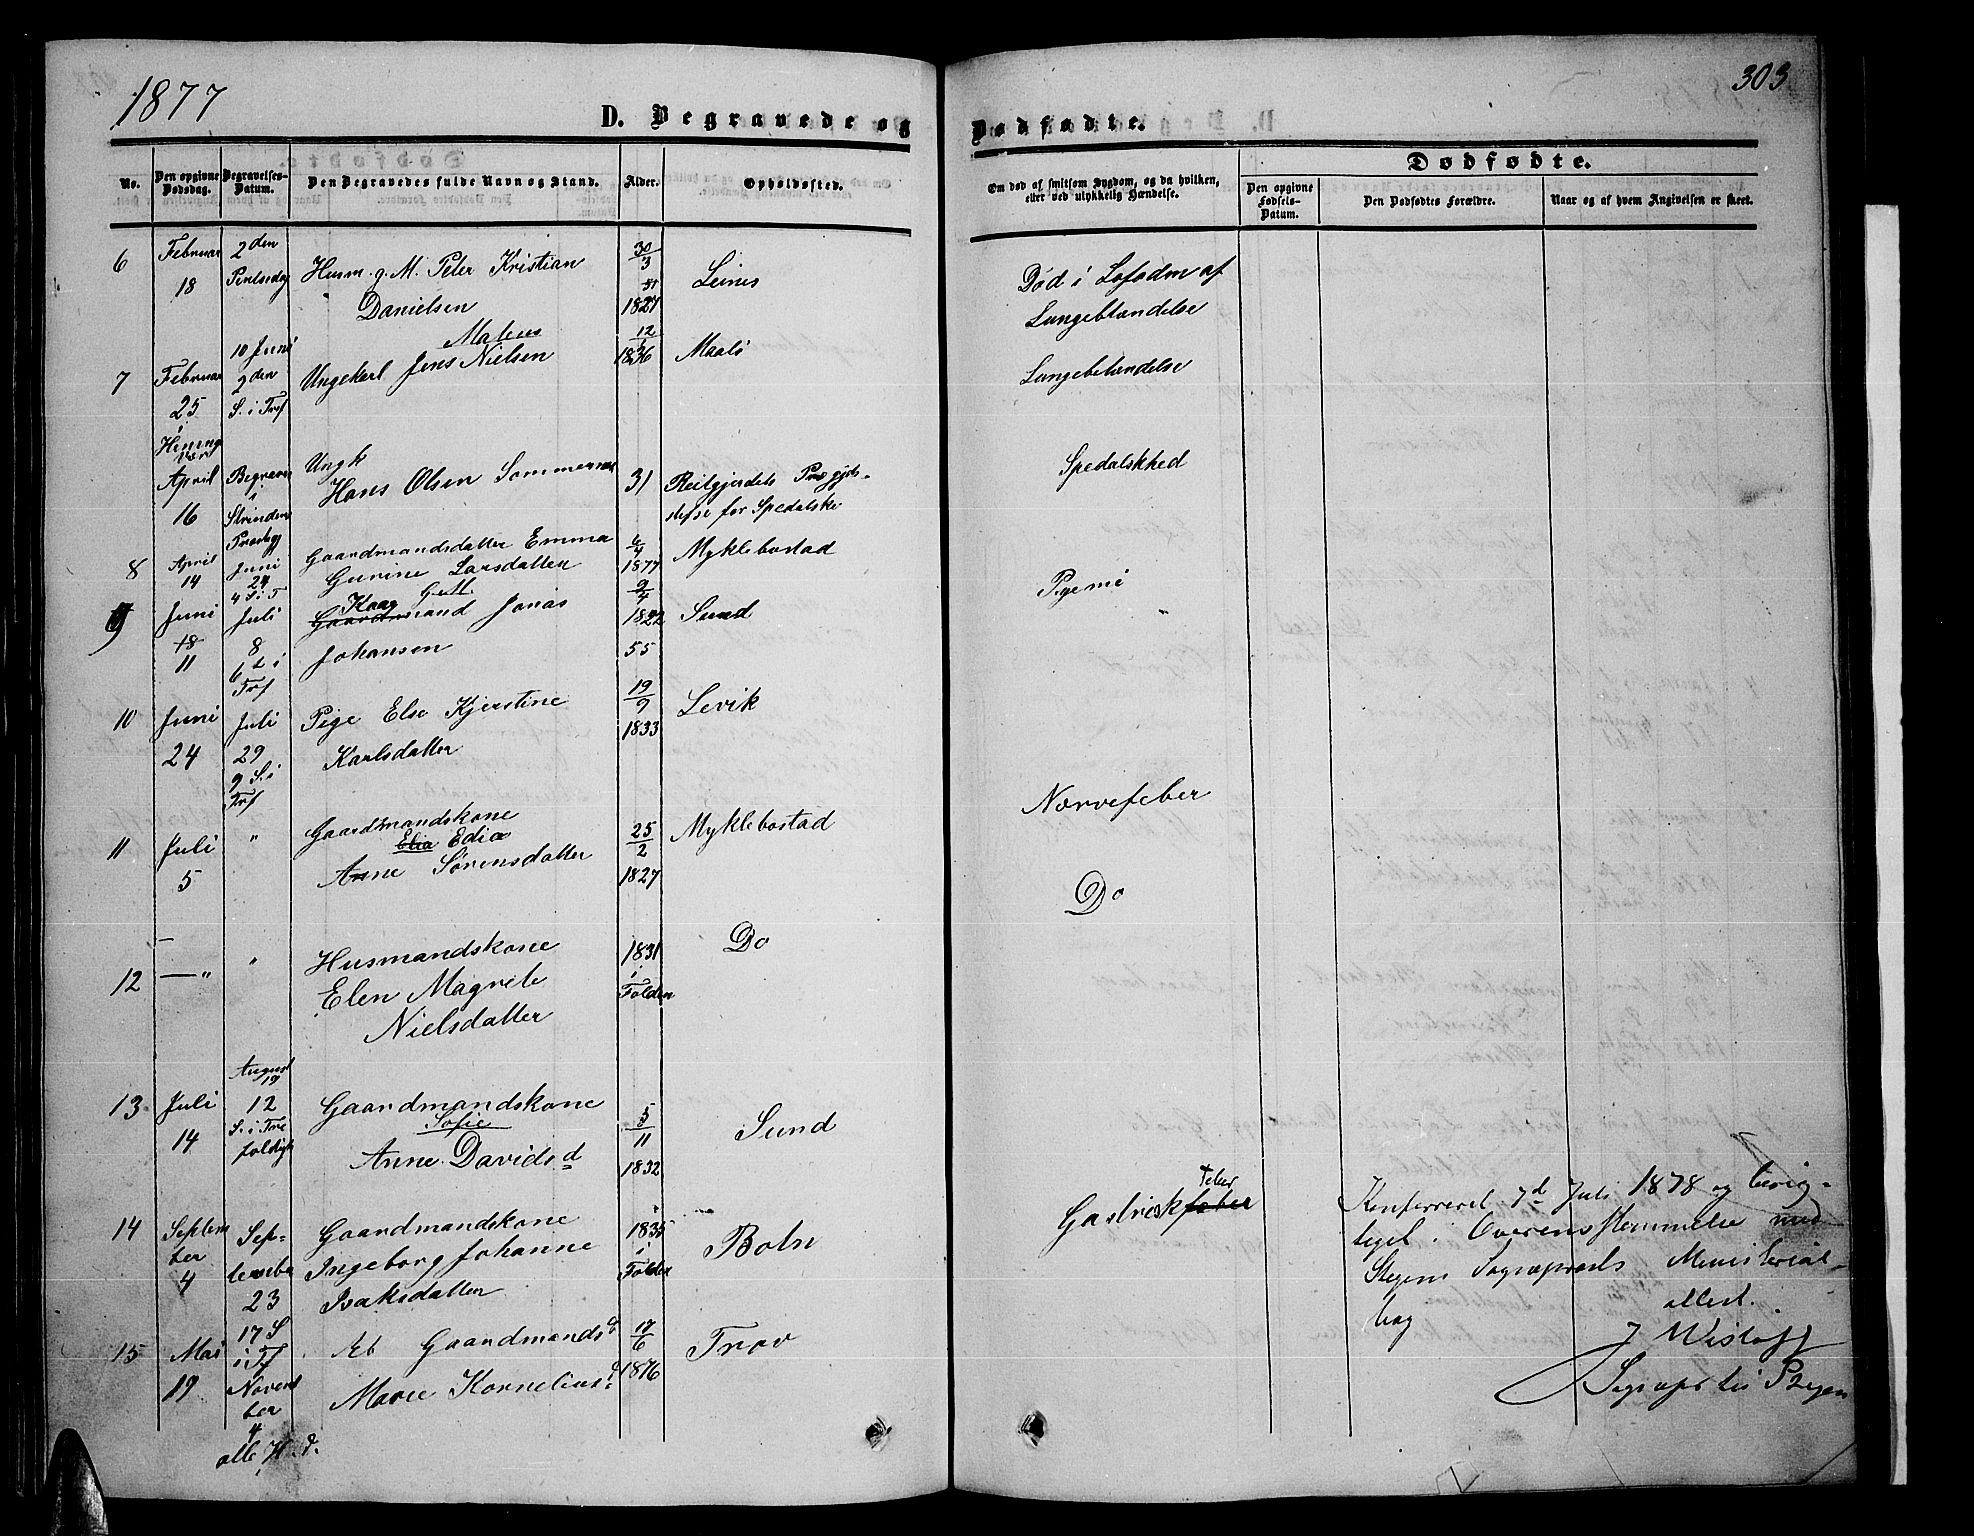 1877
303
D. Begravede og
Dødfødte.
Dødfødte.
No.
Den opgivne Dødsdag.
Begravelses-Datum.
Den Begravedes fulde Navn og Stand.
Alder.
Opholdssted.
Om død af smitsom Sygdom, og da hvilken,
eller ved ulykkelig Hændelse.
Den opgivne Fødsels-Datum.
Den Dødfødtes Forældre.
Naar og af hvem Angivelsen er skeet.
6 Februar 2den Husm. g. M. Peter Kristian 30/3 Leines Død i Lofoden af
18 Pintsedag Danielsen 1827 Lungebetændelse
Mateus
10 Juni 12
7 Februar 2den Ungekarl Jens Nielsen 1836 Maalö Lungebetændelse
25 S. i Tref
i
Hening
vær
April Begraven Ungk
Hans Olsen Sommernes 31 Reitgjerdets Plejestif Spedalskhed
16 i Strinden stifse for Spedalske
Præstegj
8 April Juni Gaardmandsdatter Emma 6/4 Myklebostad
14 24 Gurine Larsdatter 1877
4 S. i T
9 Juni Juli Kaar Gaardmand Jonas 9/4 1822 Sund
18 8 Johansen 55
11 6 S i
Tref
10 Juni Juli Pige Else Kjerstine 19/9 Levik
24 29 Karlsdatter 1833
9 S. i
Tref
11 Juli " Gaardmandskone 25/2 Myklebostad Nervefeber
Elia Edia
5 Anne Sørensdatter 1827
Do
12 — " " Husmandskone 1831 Do
Elen Magrete i
Nielsdatter Folden
August
19
13 Juli 12 Gaardmandskone 5/11 Sund
Sofie
14 S. i Tre Anne Davidsd 1832
foldigh
14 Septem Sep- Gaardmandskone 1835 Botn Gastriskfeber feber
ber tembe Ingeborg Johanne i
4 23 Isaksdatter Folden
17 S
15 Mai i Tf Et Gaardmandsb 17/6 Trov
19 Novem Maree Korneliusd 1876
ber
4
alle H. d.
Konfereret 7d Juli 1878 og bevig-
tiget i Overensstemmelse med
Stegens Sogneprests Ministerial-
bog attest.
J Wisløff
Sogneprest til Stegen